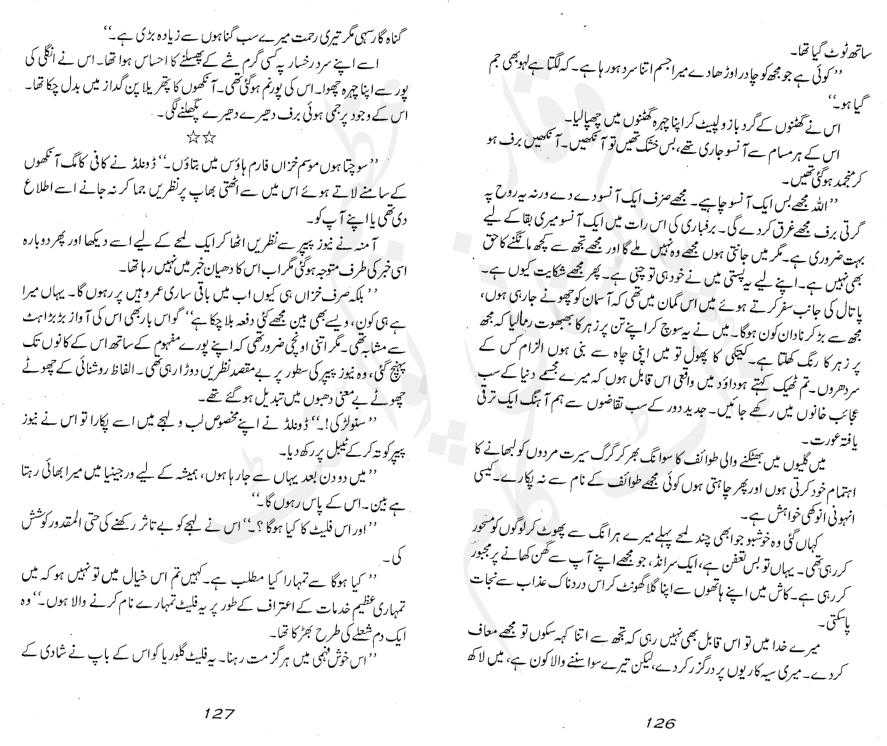 ساتھ ٹوٹ گیا تھا۔
’’کوئی ہے جو مجھ کو چادر اوڑھا دے میرا جسم اتنا سرد ہو رہا ہے۔ کہ لگتا ہے لہو بھی جم
گیا ہو۔‘‘
اس نے گھٹنوں کے گرد بازو لپیٹ کر اپنا چہرہ گھٹنوں میں چھپا لیا۔
اس کے ہر مسام سے آنسو جاری تھے، بس خشک تھیں تو آنکھیں۔ آنکھیں برف ہو
کر منجمد ہو گئی تھیں۔
’’اللہ مجھے بس ایک آنسو چاہیے۔ مجھے صرف ایک آنسو دے دے ورنہ یہ روح پہ
گرتی برف مجھے غرق کر دے گی۔ برفباری کی اس رات میں ایک آنسو میری بقا کے لیے
بہت ضروری ہے۔ مگر میں جانتی ہوں مجھے وہ نہیں ملے گا اور مجھے تجھ سے کچھ مانگنے کا حق
بھی نہیں ہے۔ اپنے لیے یہ پستی میں نے خود ہی تو چنی ہے۔ پھر مجھے شکایت کیوں ہے۔
پاتال کی جانب سفر کرتے ہوئے میں اس گمان میں تھی کہ آسمان کو چھونے جا رہی ہوں،
مجھ سے بڑھ کر نادان کون ہوگا۔ میں نے یہ سوچ کر اپنے تن پر زہر کا بھبھوت رما لیا کہ مجھ
پر زہر کا رنگ کھلتا ہے۔ کیکٹی کا پھول تو میں اپنی چاہ سے بنی ہوں الزام کس کے
سر دھروں۔ تم ٹھیک کہتے ہو داؤد میں واقعی اس قابل ہوں کہ میرے مجسمے دنیا کے سب
عجائب خانوں میں رکھے جائیں۔ جدید دور کے سب تقاضوں سے ہم آہنگ ایک ترقی
یافتہ عورت۔
میں گلیوں میں بھٹکنے والی طوائف کا سوانگ بھر کر گرگ سیرت مردوں کو لبھانے کا
اہتمام خود کرتی ہوں اور پھر چاہتی ہوں کوئی مجھے طوائف کے نام سے نہ پکارے۔ کیسی
انہونی انوکھی خواہش ہے۔
کہاں گئی وہ خوشبو جو ابھی چند لمحے پہلے میرے ہر انگ سے پھوٹ کر لوگوں کو مسحور
کر رہی تھی۔ یہاں تو بس تعفن ہے، ایک سرانڈ، جو مجھے اپنے آپ سے گھن کھانے پر مجبور
کر رہی ہے۔ کاش میں اپنے ہاتھوں سے اپنا گلا گھونٹ کر اس دردناک عذاب سے نجات
پا سکتی۔
میرے خدا میں تو اس قابل بھی نہیں رہی کہ تجھ سے اتنا کہہ سکوں تو مجھے معاف
کر دے۔ میری سیہ کاریوں پر درگزر کر دے، لیکن تیرے سوا سننے والا کون ہے، میں لاکھ
126
گناہ گار سہی مگر تیری رحمت میرے سب گناہوں سے زیادہ بڑی ہے۔‘‘
اسے اپنے سرد رخسار پہ کسی گرم شے کے پھسلنے کا احساس ہوا تھا۔ اس نے انگلی کی
پور سے اپنا چہرہ چھوا۔ اس کی پور نم ہو گئی تھی۔ آنکھوں کا پتھریلا پن گداز میں بدل چکا تھا۔
اس کے وجود پر جمی ہوئی برف دھیرے دھیرے پگھلنے لگی۔
☆☆
’’سوچتا ہوں موسم خزاں فارم ہاؤس میں بتاؤں۔‘‘ ڈونلڈ نے کافی کا مگ آنکھوں
کے سامنے لاتے ہوئے اس میں سے اٹھتی بھاپ پر نظریں جما کر نہ جانے اسے اطلاع
دی تھی یا اپنے آپ کو۔
آمنہ نے نیوز پیپر سے نظریں اٹھا کر ایک لمحے کے لیے اسے دیکھا اور پھر دوبارہ
اسی خبر کی طرف متوجہ ہو گئی مگر اب اس کا دھیان خبر میں نہیں رہا تھا۔
’’بلکہ صرف خزاں ہی کیوں اب میں باقی ساری عمر وہیں پر رہوں گا۔ یہاں میرا
ہے ہی کون، ویسے بھی بین مجھے کئی دفعہ بلا چکا ہے‘‘ گو اس بار بھی اس کی آواز بڑبڑاہٹ
سے مشابہ تھی۔ مگر اتنی اونچی ضرور تھی کہ اپنے پورے مفہوم کے ساتھ اس کے کانوں تک
پہنچ گئی، وہ نیوز پیپر کی سطور پر بے مقصد نظریں دوڑا رہی تھی۔ الفاظ روشنائی کے چھوٹے
چھوٹے بے معنی دھبوں میں تبدیل ہو گئے تھے۔
’’سنو لڑکی!۔‘‘ ڈونلڈ نے اپنے مخصوص لب و لہجے میں اسے پکارا تو اس نے نیوز
پیپر کو تہ کر کے ٹیبل پر رکھ دیا۔
’’میں دو دن بعد یہاں سے جا رہا ہوں، ہمیشہ کے لیے ورجینیا میں میرا بھائی رہتا
ہے بین۔ اس کے پاس رہوں گا۔‘‘
’’اور اس فلیٹ کا کیا ہوگا؟۔‘‘ اس نے لہجے کو بے تاثر رکھنے کی حتی المقدور کوشش
کی۔
’’کیا ہوگا سے تمہارا کیا مطلب ہے۔ کہیں تم اس خیال میں تو نہیں ہو کہ میں
تمہاری عظیم خدمات کے اعتراف کے طور پر یہ فلیٹ تمہارے نام کرنے والا ہوں۔‘‘ وہ
ایک دم شعلے کی طرح بھڑکا تھا۔
’’اس خوش فہمی میں ہرگز مت رہنا۔ یہ فلیٹ گلوریا کو اس کے باپ نے شادی کے
127